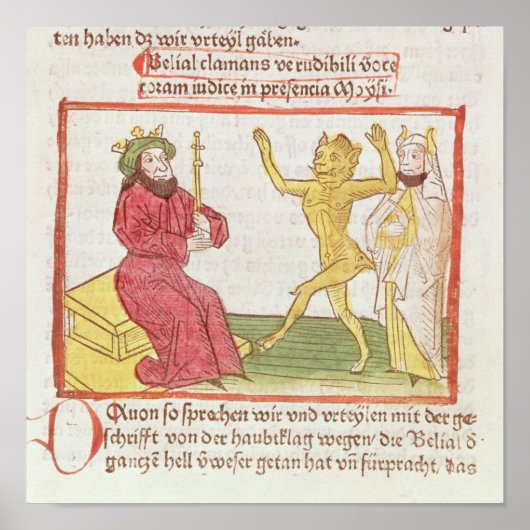 ten haben dz wir vrteyl gåben.
Belial clamans ve rudibili voce
coram iudice in presencia Moysi.
Dauon so sprechen wir vnd vrteylen mit der ge-
schrifft von der haubtklag wegen/ die Belial d̄
gancze hell v̈weser getan hat vn̄ fürpracht/ das